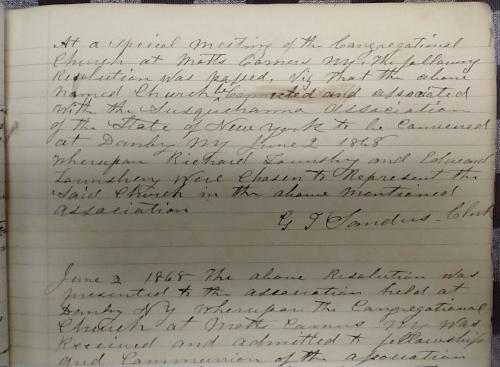 At a Speical Meeting of the Congregational
Church at Motts Corners NY. the following
Resolution was passed, Viz that the above
named Church be Connected and associated
With the Susquehanna Association
of the State of New York to be Convened
at Danby NY June 2 1868
Whereupon Richard Lounsbry and Edward
Lounsbery Were Chosen to Represent the
Said Church in the above mentioned
association
G T Sandus - Clerk
June 2 1868 The above Resolution was
presented to the association held at
Danby NY Whereupon the Congregational
Church at Motts Corners NY Was
Received and admitted to fellowship
and Communion of the association